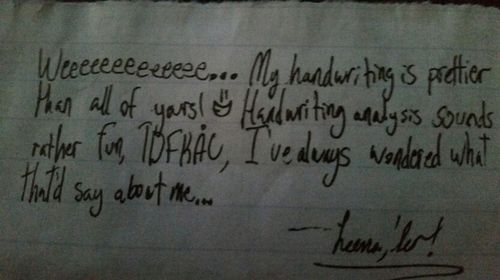 Weeeeeeeeeeeee... My handwriting is prettier
than all of yours! Handwriting analysis sounds
rather fun, I've always wondered what
that'd say about me...